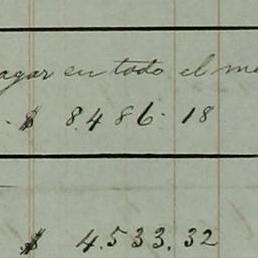 agar en todo el m
$ 8.486.18
$ 4.533.32